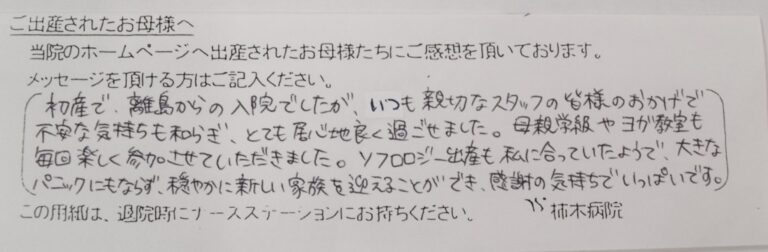 ご出産されたお母様へ
当院のホームページへ出産されたお母様たちにご感想を頂いております。
メッセージを頂ける方はご記入ください。
初産で、離島からの入院でしたが、いつも親切なスタッフの皆様のおかげで
不安な気持ちも和らぎ、とても居心地良く過ごせました。母親学級やヨガ教室も
毎回楽しく参加させていただきました。ソフロロジー出産も私に合っていたようで、大きな
パニックにもならず、穏やかに新しい家族を迎えることができ、感謝の気持ちでいっぱいです。
この用紙は、退院時にナースステーションにお持ちください。 柿木病院